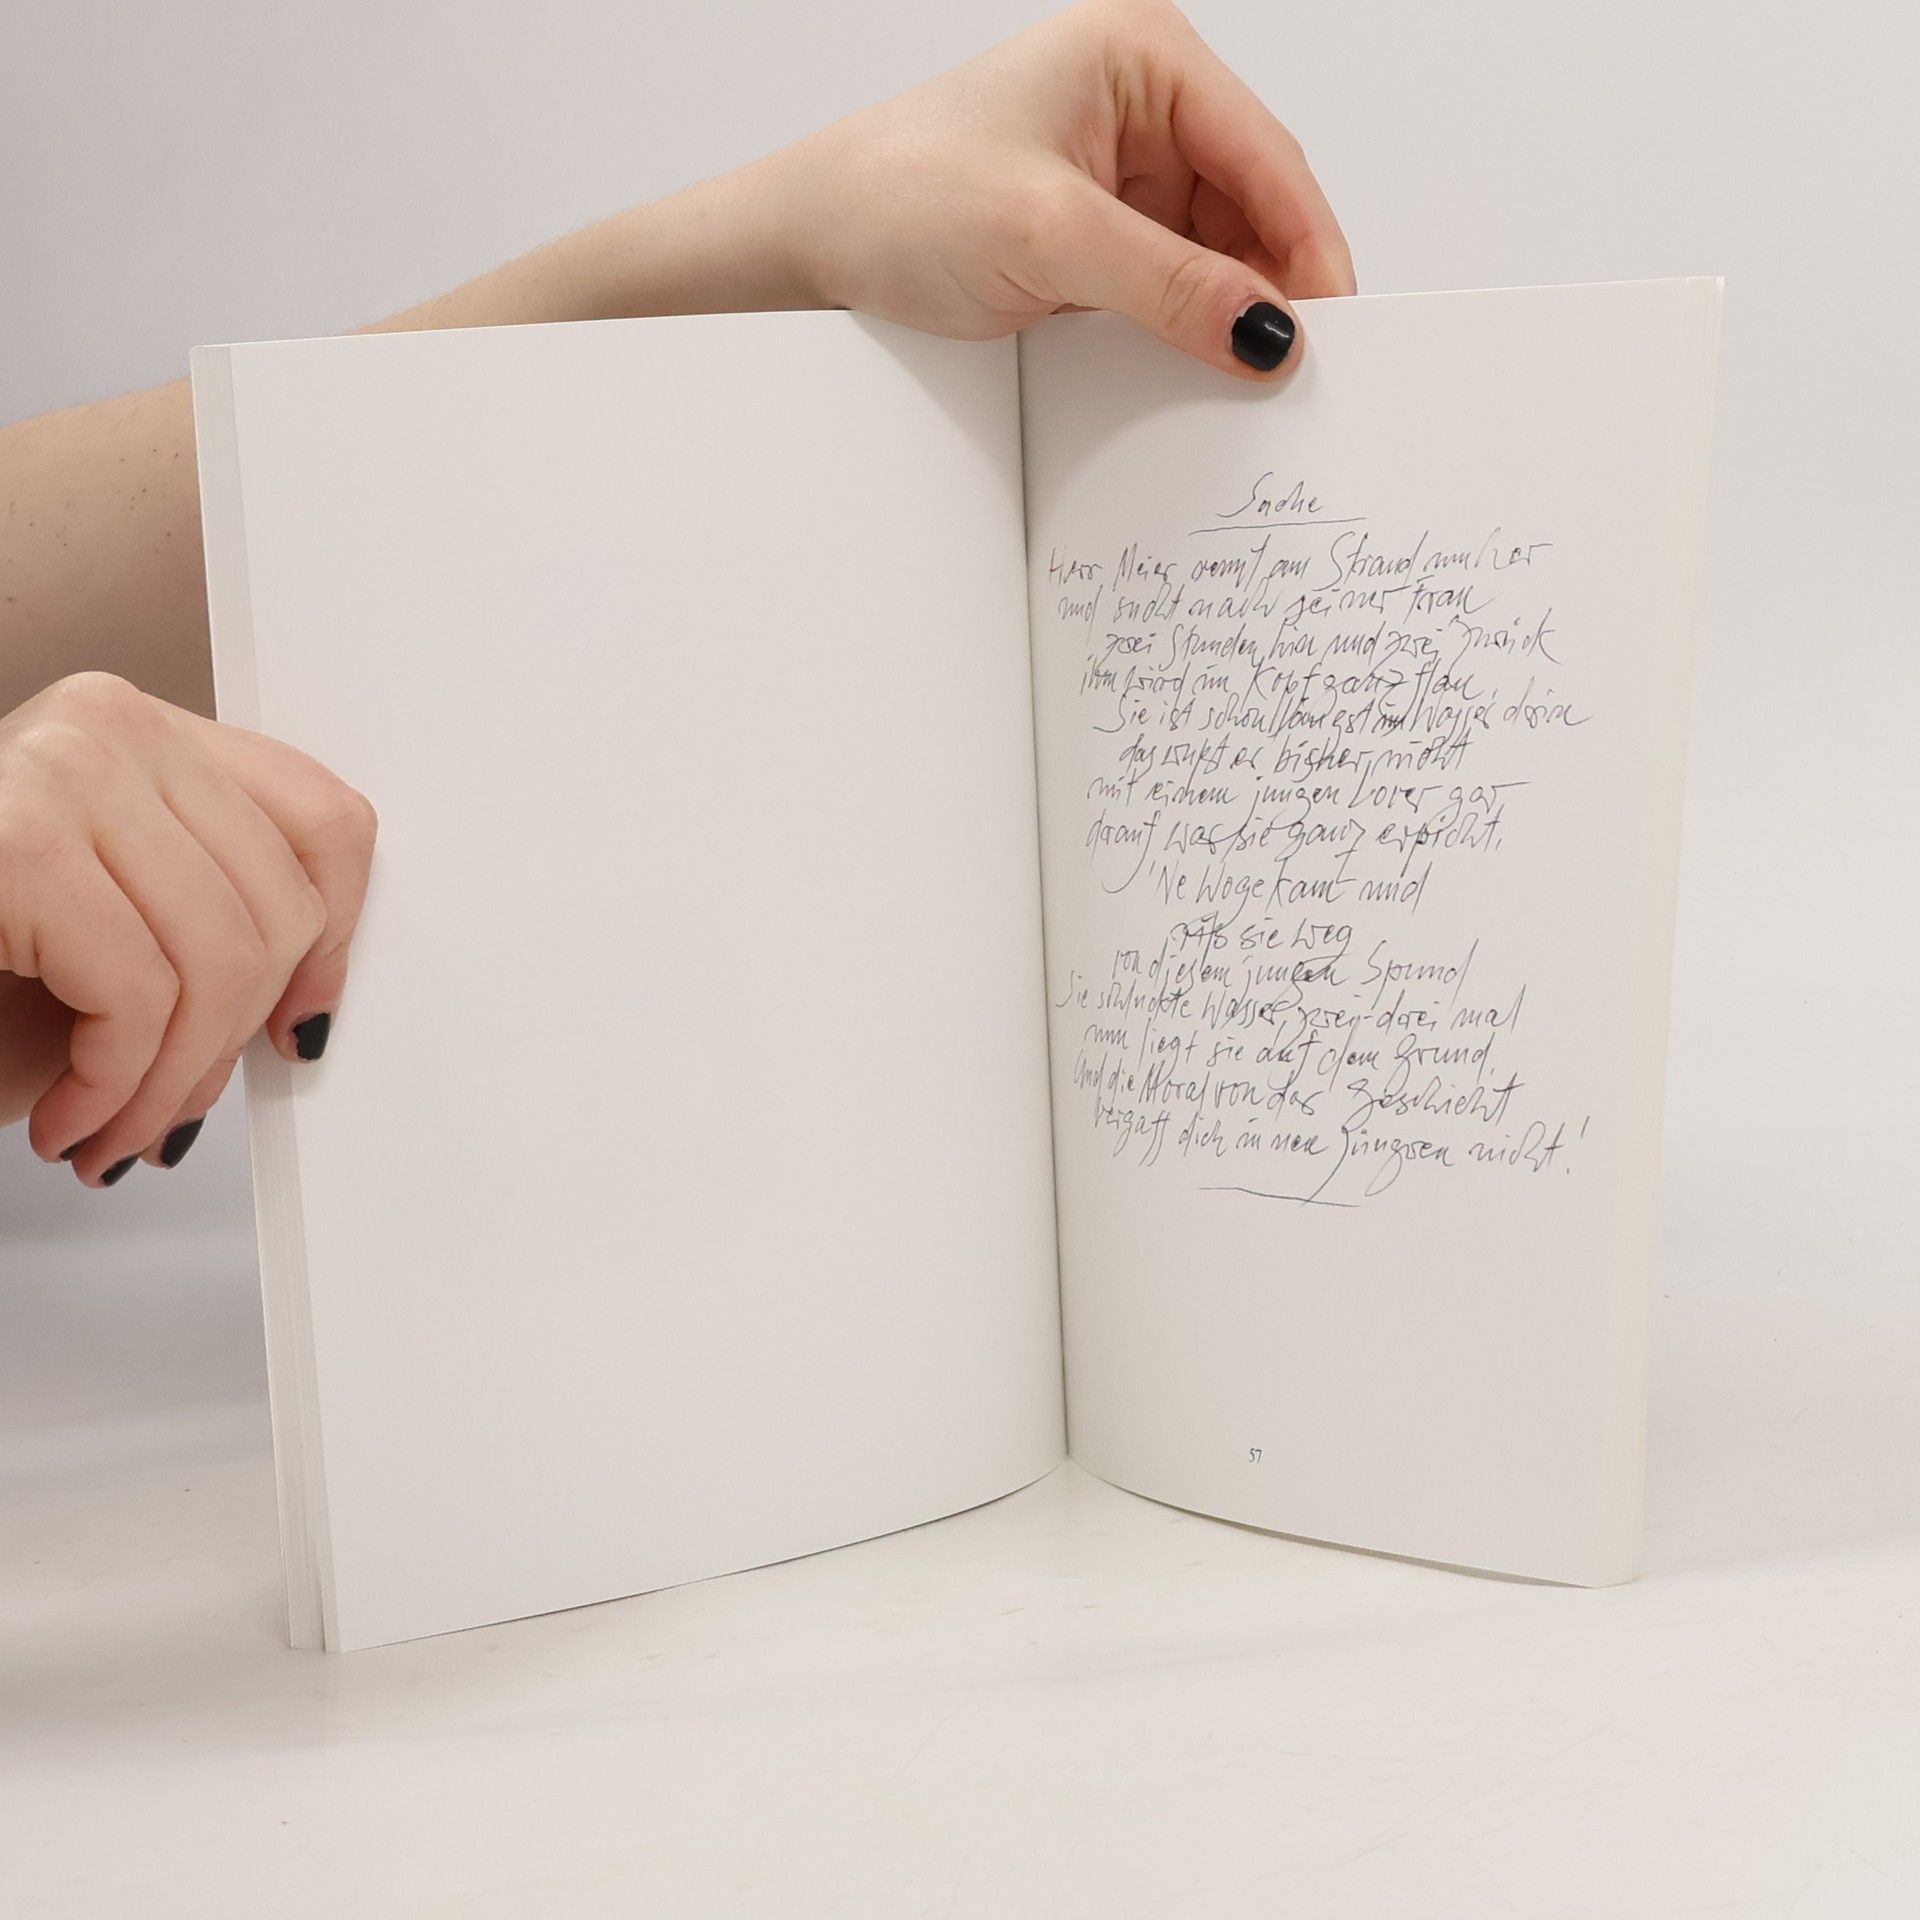 Suche
Herr Meier rennt am Strand umher
und sucht nach seiner Frau
zwei Stunden hin und zwei zurück
ihm wird im Kopf ganz flau,
Sie ist schon längst im Wasser drin
das wußt er bisher nicht
mit einem jungen Lover gar
darauf war sie ganz erpicht.
'Ne Woge kam und
riß sie weg
von diesem jungen Spund
Sie schluckte Wasser, zwei-drei mal
nun liegt sie auf dem Grund.
Und die Moral von der Geschicht
vergaff dich in nen Jüngren nicht!
57